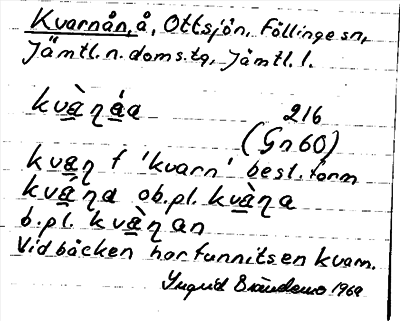 Kvarnån, å, Ottsjön, Föllinge sn,
Jämtl. n. doms.tg, Jämtl. l.
kvàṇáa
216
(Gn 60)
kvaṇ f 'kvarn' best. form
kváṇa ob.pl. kvàṇa
b.pl. kvàṇan
Vid bäcken har funnits en kvarn.
Ingrid 1960